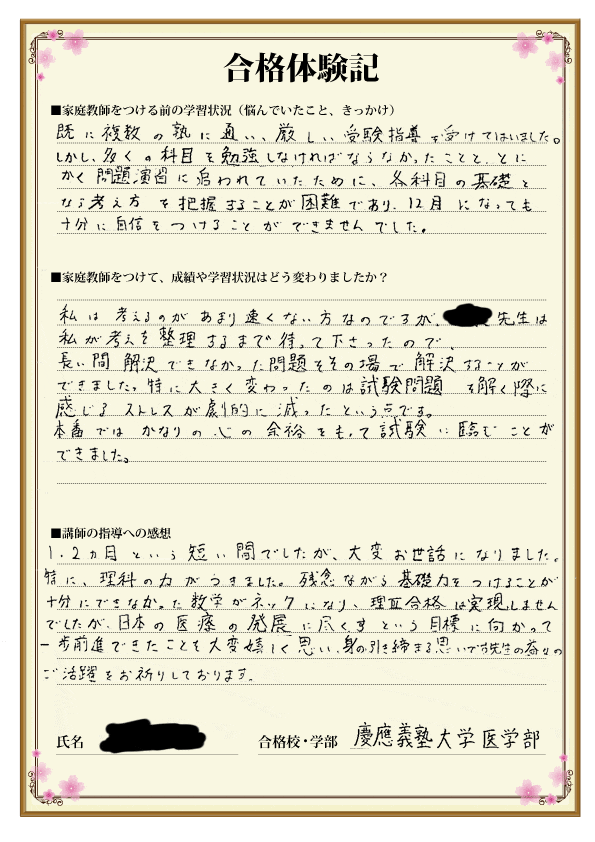 合格体験記
■家庭教師をつける前の学習状況（悩んでいたこと、きっかけ）
既に複数の塾に通い、厳しい受験指導を受けてはいました。
しかし、多くの科目を勉強しなければならなかったことと、とに
かく問題演習に追われていたために、各科目の基礎と
なる考え方を把握することが困難であり、12月になっても
十分に自信をつけることができませんでした。
■家庭教師をつけて、成績や学習状況はどう変わりましたか？
私は考えるのがあまり速くない方なのですが、先生は
私が考えを整理するまで待って下さったので、
長い間解決できなかった問題をその場で解決することが
できました。特に大きく変わったのは試験問題を解く際に
感じるストレスが劇的に減ったという点です。
本番ではかなりの心の余裕をもって試験に臨むことが
できました。
■講師の指導への感想
1.2ヵ月という短い間でしたが、大変お世話になりました。
特に、理科の力がつきました。残念ながら基礎力をつけることが
十分にできなかった数学がネックになり、理Ⅲ合格は実現しません
でしたが、日本の医療の発展に尽くすという目標に向かって
一歩前進できたことを大変嬉しく思い、身の引き締まる思いです。先生の益々の
ご活躍をお祈りしております。
氏名 合格校・学部 慶應義塾大学医学部